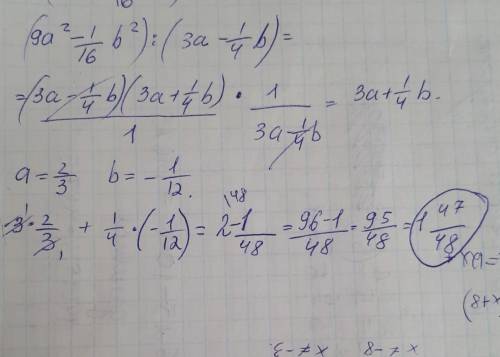 (9a² - 1/16 b²) : (3a - 1/4 b) =
= (3a - 1/4 b)(3a + 1/4 b) / 1 · 1 / (3a - 1/4 b) = 3a + 1/4 b.
a = 2/3 b = - 1/12.
3 · 2/3 + 1/4 · (- 1/12) = 2 - 1/48 = (96 - 1)/48 = 95/48 = 1 47/48
(8+x
x ≠ -8 x ≠ -3.